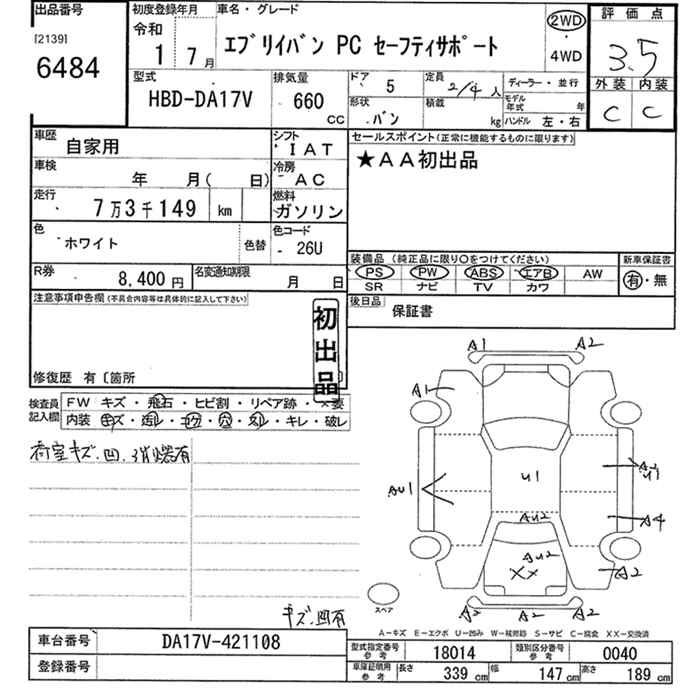 出品番号
[2139]
6484
初度登録年月
令和
1 7月
車名・グレード
エブリイバン PC セーフティサポート
2WD
4WD
評価点
3.5
外装 内装
C C
型式
HBD-DA17V
排気量
660
CC
ドア 5
形状
バン
定員 2/4人
積載 kg
ディーラー・並行
モデル年式 年
ハンドル 左・右
車歴 自家用
車検 年 月( 日)
走行 7万3千149 km
色 ホワイト 色替
R券 8,400円
名変通知期限 月 日
シフト
IAT
冷房
AC
燃料
ガソリン
色コード
26U
セールスポイント(正常に機能するものに限ります)
★AA初出品
装備品 (純正品に限り○をつけてください)
PS PW ABS エアB AW
SR ナビ TV カワ
新車保証書
有・無
後日品
保証書
注意事項申告欄(不具合内容等は具体的に記入して下さい)
初出品
修復歴 有〔箇所
検査員記入欄
FW キズ・飛石・ヒビ割・リペア跡・×要
内装 キズ・汚レ・コゲ・穴・スレ・キレ・破レ
荷室キズ、凹、消火器有
キズ、凹有
A1
A2
A1
AU1
U1
U1
AU2
A4
AU2
XX
A2
A2
A2
A2
スペア
A-キズ E-エクボ U-凹み W-補修跡 S-サビ C-腐食 XX-交換済
車台番号 DA17V-421108
登録番号
型式指定番号 参考 18014
類別区分番号 参考 0040
車庫証明用 参考
長さ 339 cm
幅 147 cm
高さ 189 cm